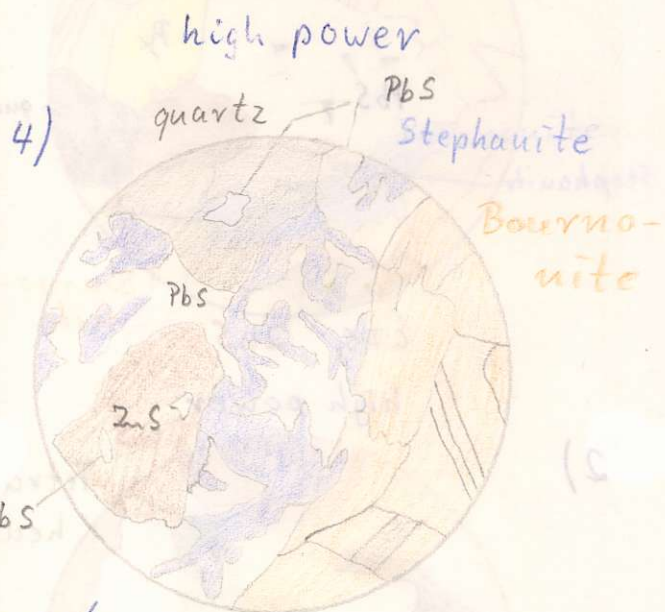 high power
4)
quartz
PbS
Stephanite
Bourno-
nite
PbS
ZnS
bS
2)